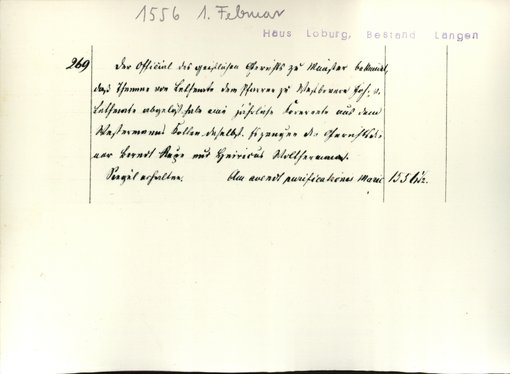 1556 1. Februar
Haus Loburg, Bestand Langen
269 Der Official des geistlichen Gerichts zu Münster bekundet,
daß Themme von Lethmate dem Pfarrer zu Westbevern Joh. v.
Lethmate abgelöst habe eine jährliche Rente aus dem
Westermanns Kotten daselbst. Zeugen des Gerichts
Berndt und Henricus Wolthermann.
Siegel erhalten. Am avendt purificationis Marie 1556